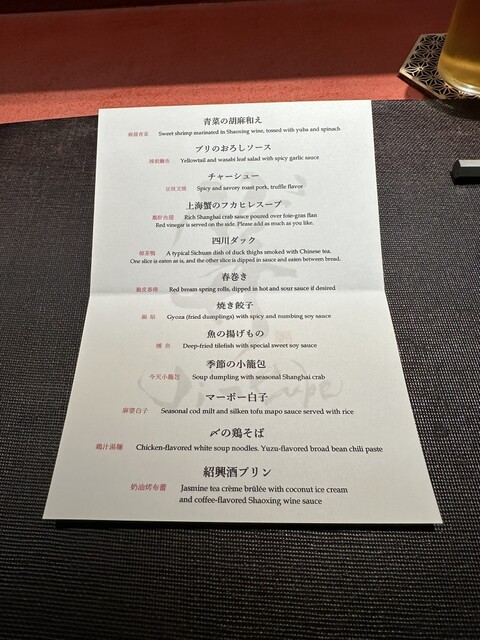 青菜の胡麻和え
Sweet shrimp marinated in Shaoxing wine, tossed with yuba and spinach
ブリのおろしソース
Yellowtail and wasabi leaf salad with spicy garlic sauce
チャーシュー
Spicy and savory roast pork, truffle flavor
上海蟹のフカヒレスープ
Rich Shanghai crab sauce poured over foie-gras flan
Red vinegar is served on the side. Please add as much as you like.
四川ダック
樟茶鴨 A typical Sichuan dish of duck thighs smoked with Chinese tea.
One slice is eaten as is, and the other slice is dipped in sauce and eaten between bread.
春巻き
脆皮春捲 Red bream spring rolls, dipped in hot and sour sauce if desired
焼き餃子
鍋貼 Gyoza (fried dumplings) with spicy and numbing soy sauce
魚の揚げもの
Deep-fried tilefish with special sweet soy sauce
季節の小籠包
今天小籠包 Soup dumpling with seasonal Shanghai crab
マーボー白子
麻婆白子 Seasonal cod milt and silken tofu mapo sauce served with rice
〆の鶏そば
鶏汁湯麺 Chicken-flavored white soup noodles. Yuzu-flavored broad bean chili paste
紹興酒プリン
奶油烤布蕾 Jasmine tea crème brûlée with coconut ice cream
and coffee-flavored Shaoxing wine sauce